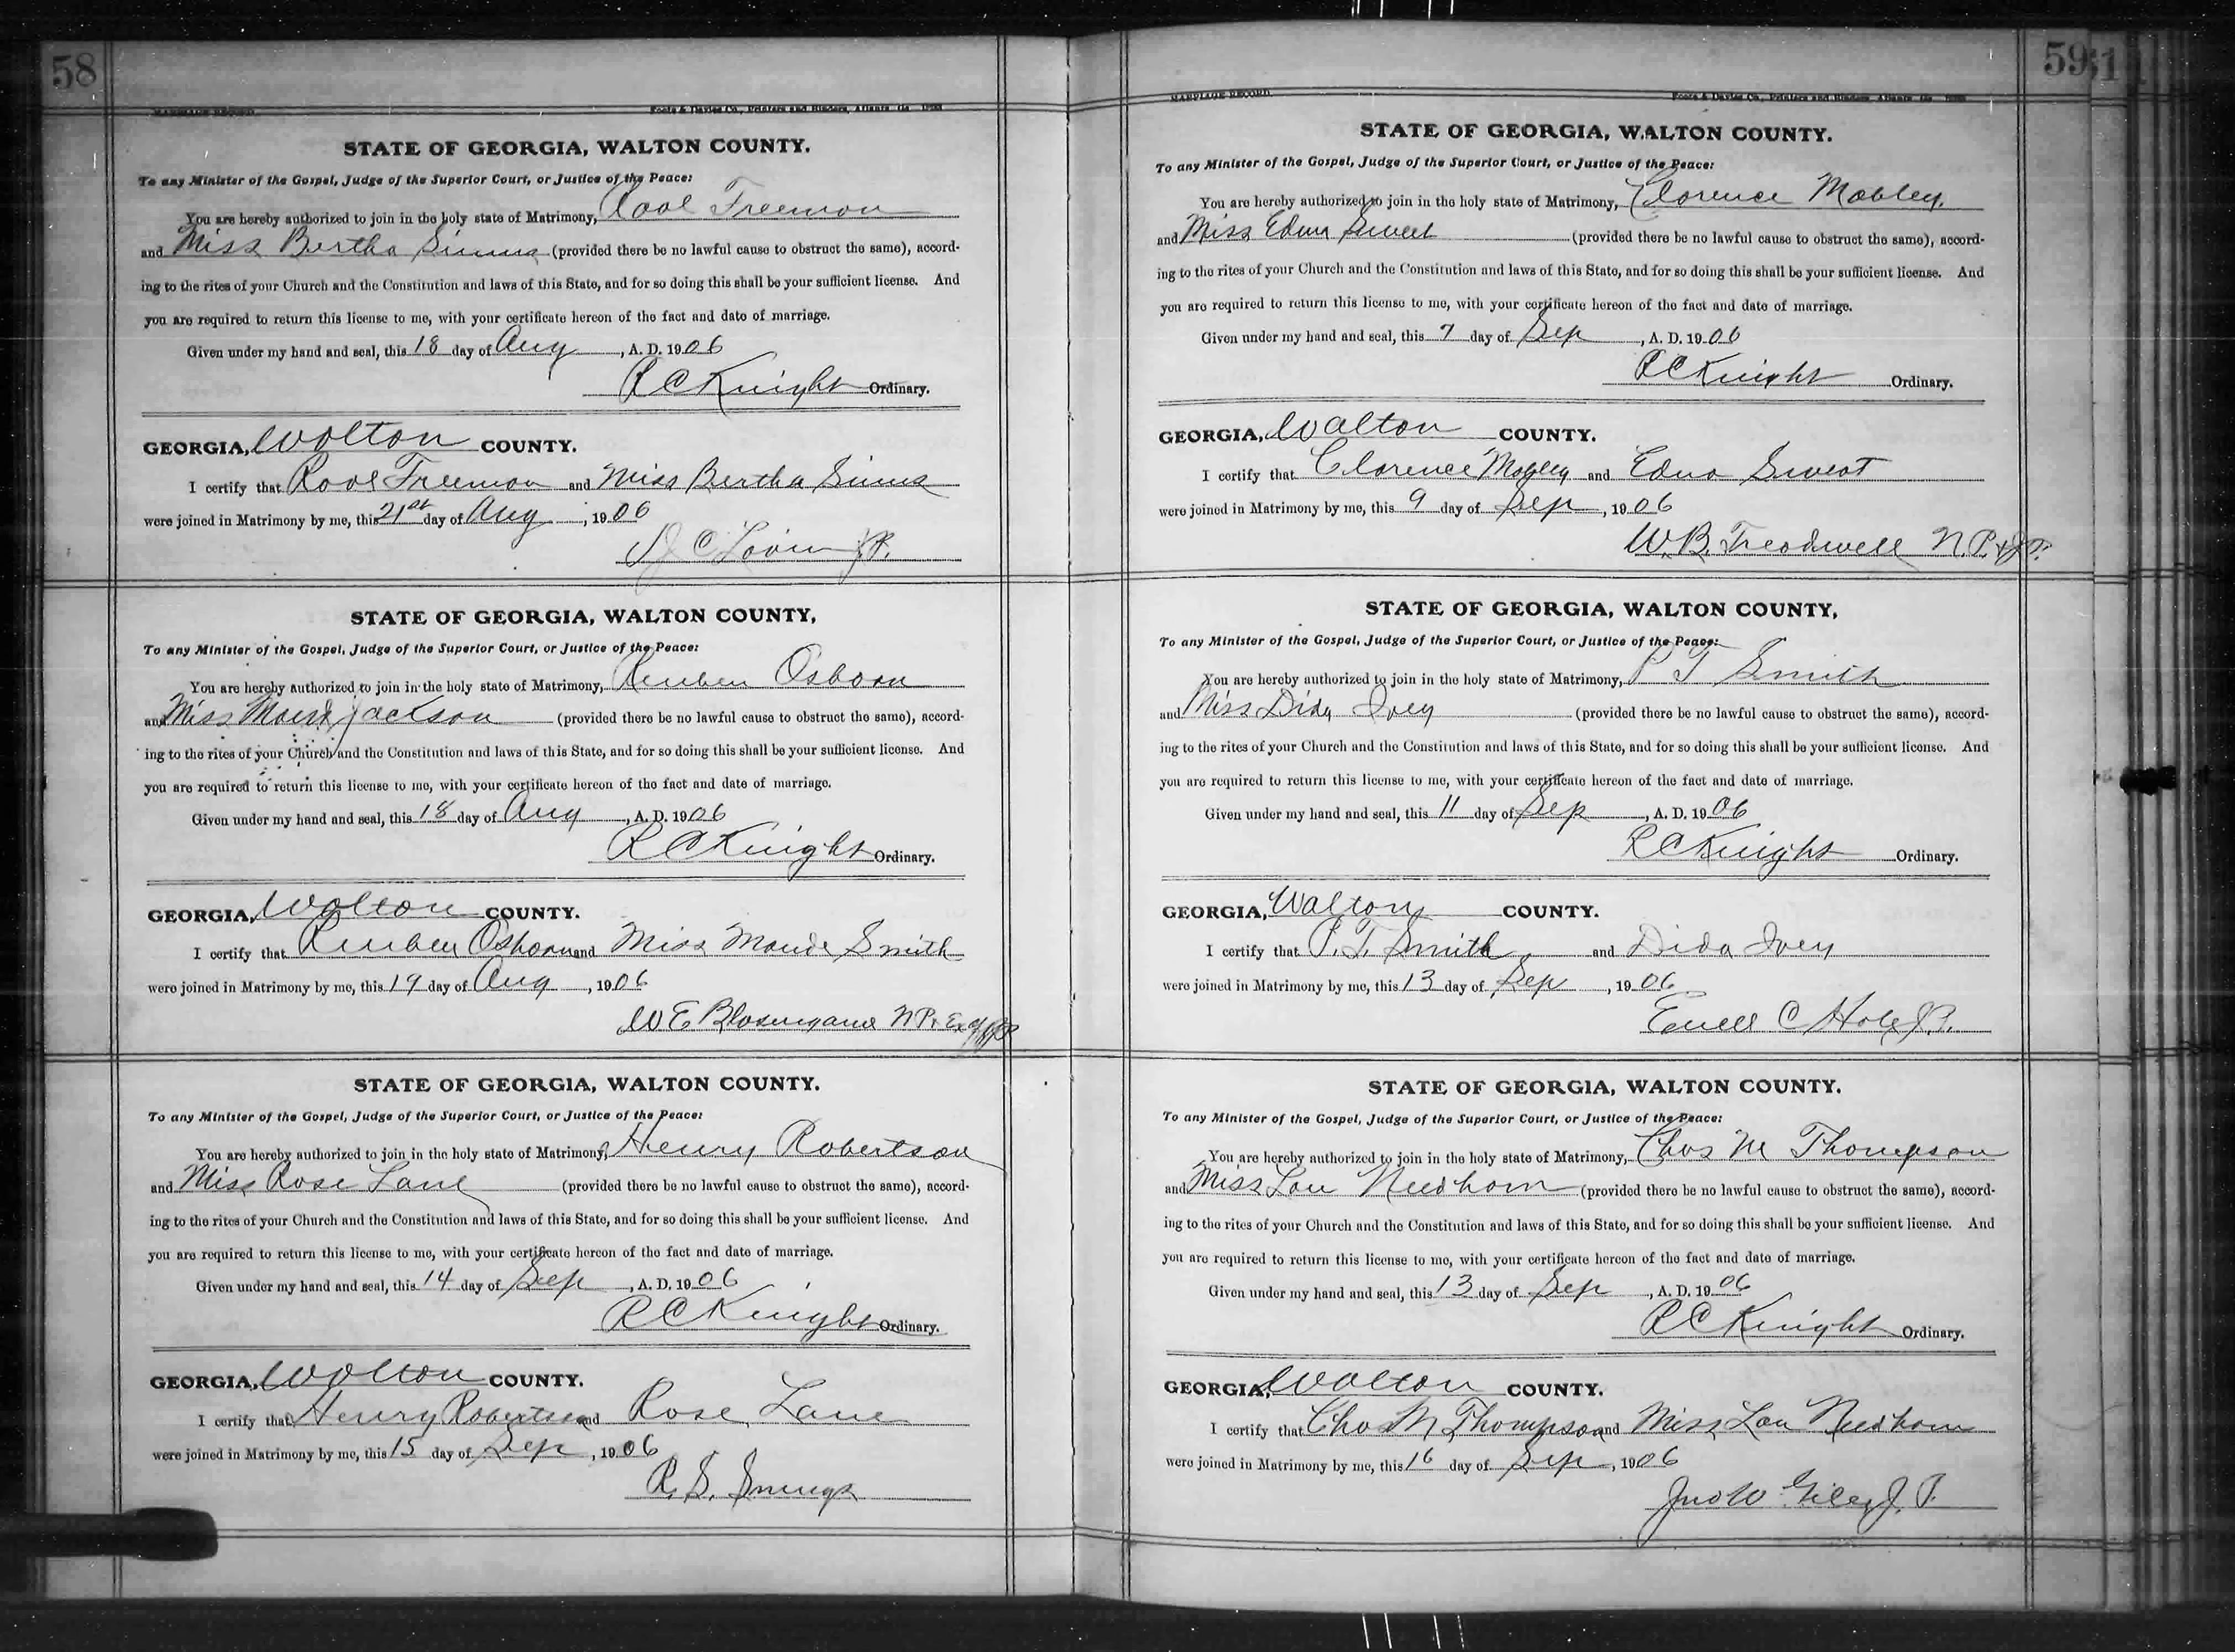 58
MARRIAGE RECORD Foote & Davies Co., Printers and Binders, Atlanta, Ga.
STATE OF GEORGIA, WALTON COUNTY.
To any Minister of the Gospel, Judge of the Superior Court, or Justice of the Peace:
You are hereby authorized to join in the holy state of Matrimony, Freeman
and Miss Bertha Simms (provided there be no lawful cause to obstruct the same), accord-
ing to the rites of your Church and the Constitution and laws of this State, and for so doing this shall be your sufficient license. And
you are required to return this license to me, with your certificate hereon of the fact and date of marriage.
Given under my hand and seal, this 18 day of Aug, A. D. 1906
R C Knight Ordinary.
GEORGIA, Walton COUNTY.
I certify that Freeman and Miss Bertha Simms
were joined in Matrimony by me, this 21st day of Aug, 1906
J.P.
STATE OF GEORGIA, WALTON COUNTY,
To any Minister of the Gospel, Judge of the Superior Court, or Justice of the Peace:
You are hereby authorized to join in the holy state of Matrimony, Reuben Osborn
and Miss Maud Jackson (provided there be no lawful cause to obstruct the same), accord-
ing to the rites of your Church and the Constitution and laws of this State, and for so doing this shall be your sufficient license. And
you are required to return this license to me, with your certificate hereon of the fact and date of marriage.
Given under my hand and seal, this 18 day of Aug, A. D. 1906
R C Knight Ordinary.
GEORGIA, Walton COUNTY.
I certify that Reuben Osborn and Miss Maude Smith
were joined in Matrimony by me, this 19 day of Aug, 1906
W E Blasingame N P & Ex off JP
STATE OF GEORGIA, WALTON COUNTY.
To any Minister of the Gospel, Judge of the Superior Court, or Justice of the Peace:
You are hereby authorized to join in the holy state of Matrimony, Henry Robertson
and Miss Rose Lane (provided there be no lawful cause to obstruct the same), accord-
ing to the rites of your Church and the Constitution and laws of this State, and for so doing this shall be your sufficient license. And
you are required to return this license to me, with your certificate hereon of the fact and date of marriage.
Given under my hand and seal, this 14 day of Sep, A. D. 1906
R C Knight Ordinary.
GEORGIA, Walton COUNTY.
I certify that Henry Robertson and Rose Lane
were joined in Matrimony by me, this 15 day of Sep, 1906
R. S.
59
MARRIAGE RECORD Foote & Davies Co., Printers and Binders, Atlanta, Ga.
STATE OF GEORGIA, WALTON COUNTY.
To any Minister of the Gospel, Judge of the Superior Court, or Justice of the Peace:
You are hereby authorized to join in the holy state of Matrimony, Clarence Mobley.
and Miss Edna Sweat (provided there be no lawful cause to obstruct the same), accord-
ing to the rites of your Church and the Constitution and laws of this State, and for so doing this shall be your sufficient license. And
you are required to return this license to me, with your certificate hereon of the fact and date of marriage.
Given under my hand and seal, this 7 day of Sep, A. D. 1906
R C Knight Ordinary.
GEORGIA, Walton COUNTY.
I certify that Clarence Mobley and Edna Sweat
were joined in Matrimony by me, this 9 day of Sep, 1906
W. B. Treadwell N. P. & J. P.
STATE OF GEORGIA, WALTON COUNTY,
To any Minister of the Gospel, Judge of the Superior Court, or Justice of the Peace:
You are hereby authorized to join in the holy state of Matrimony, P T Smith
and Miss Dida Ivey (provided there be no lawful cause to obstruct the same), accord-
ing to the rites of your Church and the Constitution and laws of this State, and for so doing this shall be your sufficient license. And
you are required to return this license to me, with your certificate hereon of the fact and date of marriage.
Given under my hand and seal, this 11 day of Sep, A. D. 1906
R C Knight Ordinary.
GEORGIA, Walton COUNTY.
I certify that P. T. Smith and Dida Ivey
were joined in Matrimony by me, this 13 day of Sep, 1906
C J.P.
STATE OF GEORGIA, WALTON COUNTY.
To any Minister of the Gospel, Judge of the Superior Court, or Justice of the Peace:
You are hereby authorized to join in the holy state of Matrimony, Chas M Thompson
and Miss Lou Needham (provided there be no lawful cause to obstruct the same), accord-
ing to the rites of your Church and the Constitution and laws of this State, and for so doing this shall be your sufficient license. And
you are required to return this license to me, with your certificate hereon of the fact and date of marriage.
Given under my hand and seal, this 13 day of Sep, A. D. 1906
R C Knight Ordinary.
GEORGIA, Walton COUNTY.
I certify that Chas M Thompson and Miss Lou Needham
were joined in Matrimony by me, this 16 day of Sep, 1906
Jno W Giles J. P.